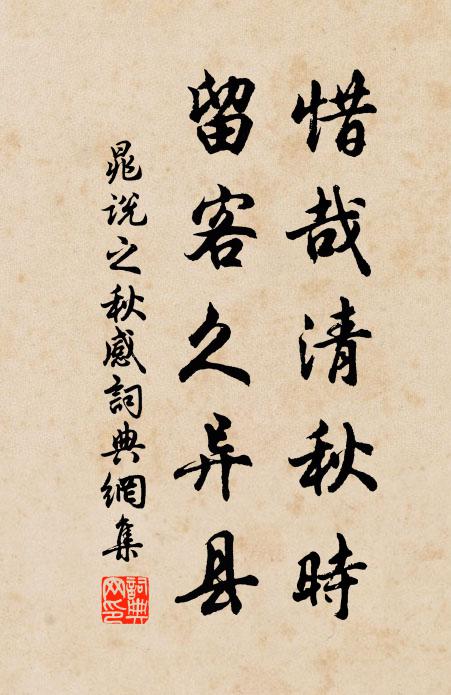 惜哉清秋時
留客久异县
晁说之秋感詞典網集
詞典网印